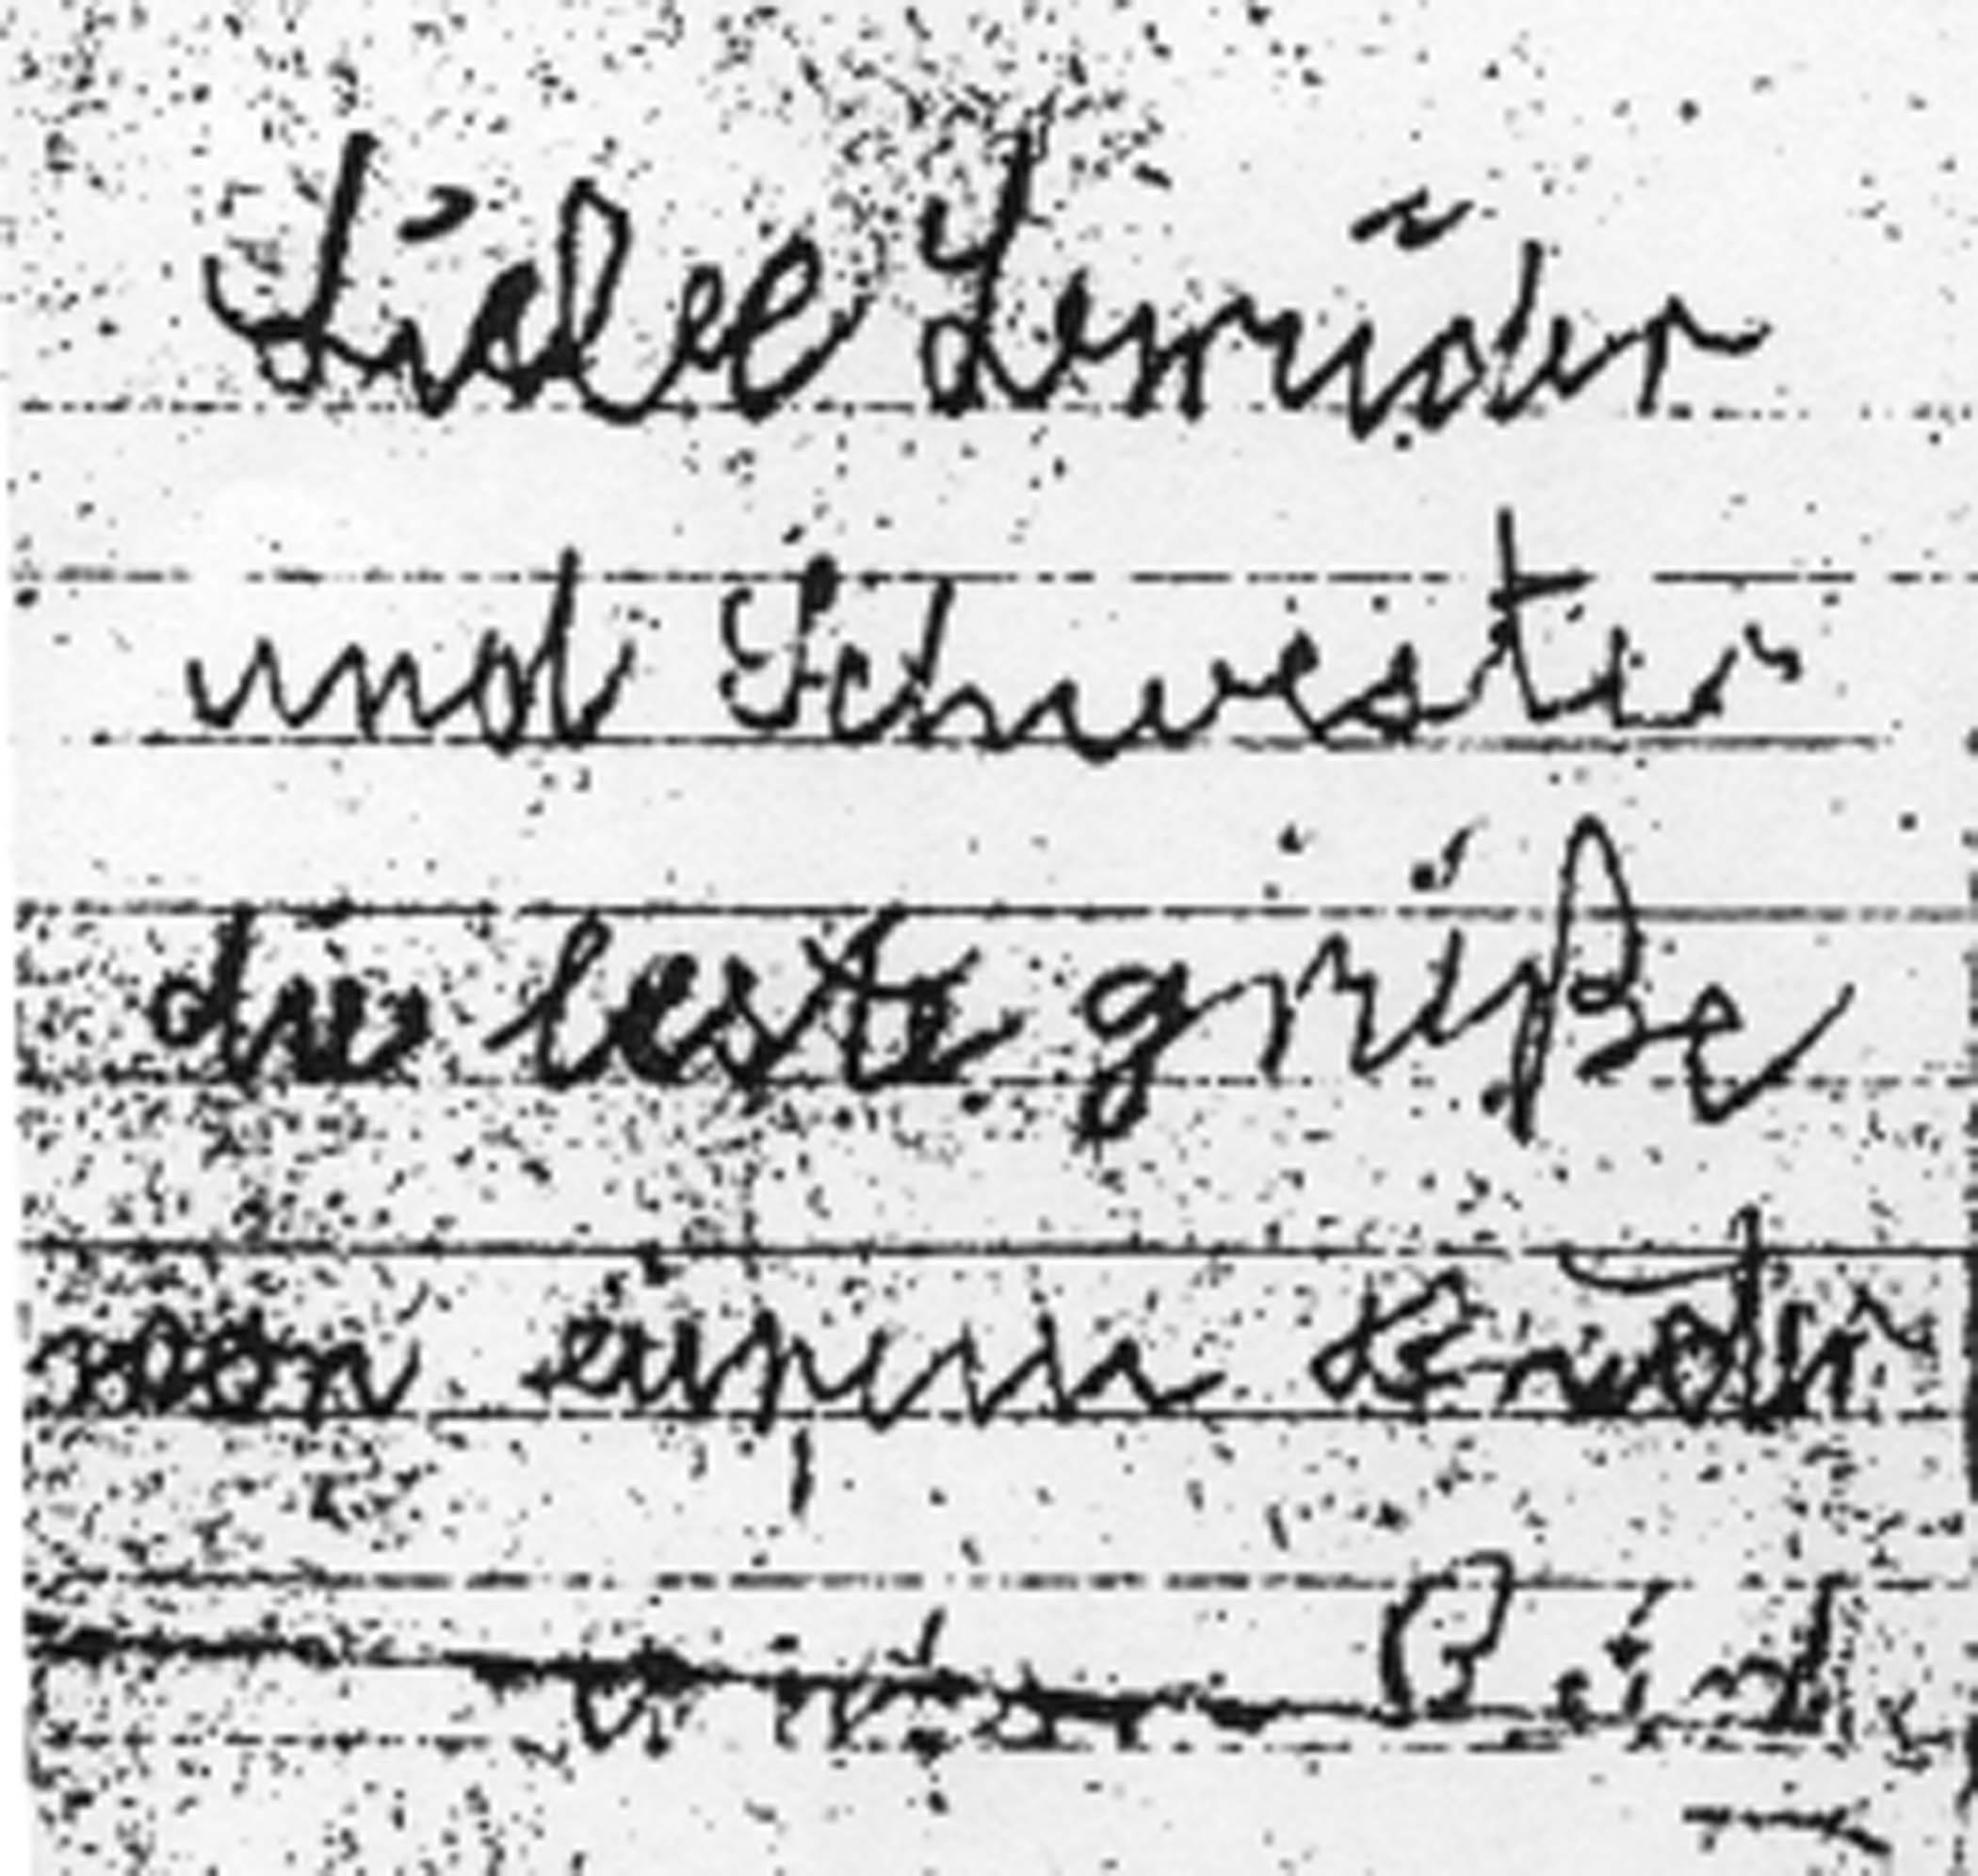 Liebe Brüder
und Schwester
die beste grüße
von eurem Bruder